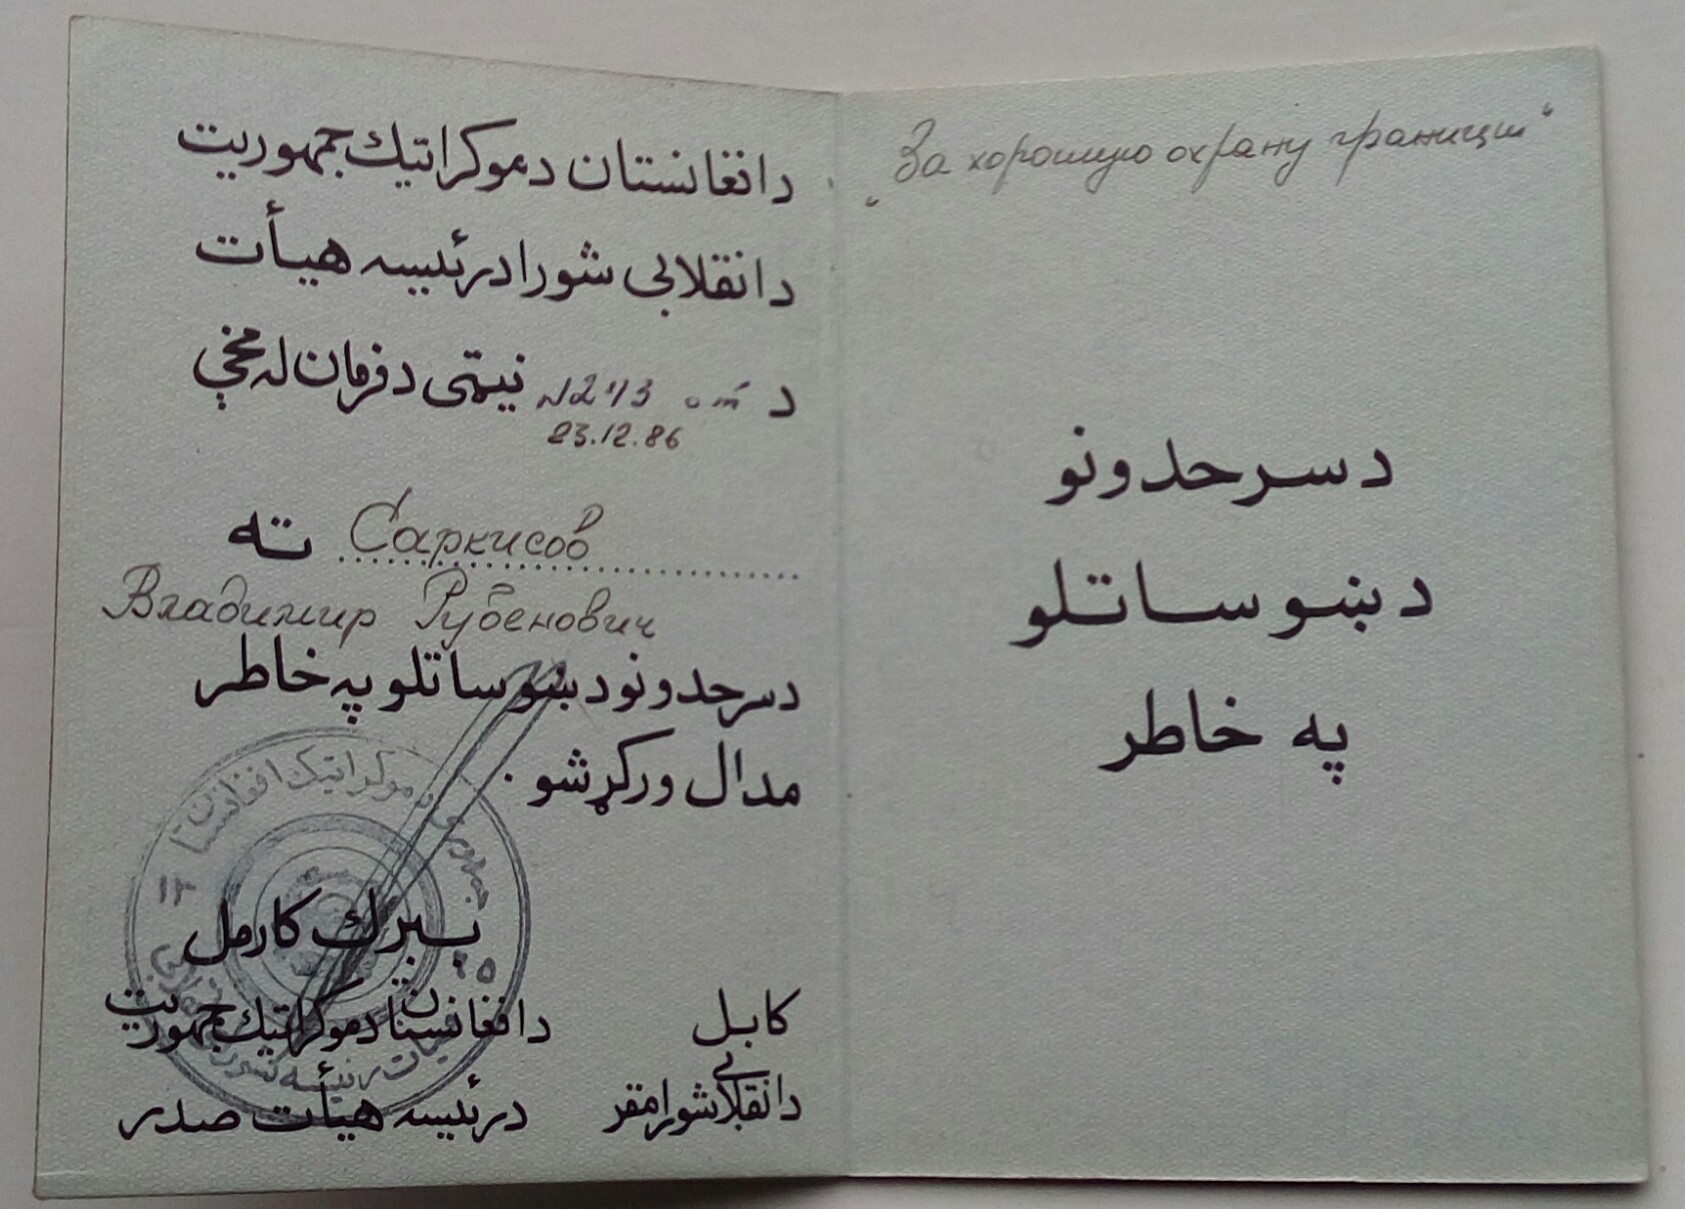 دافغانستان دموکراتیك جمهوریت
دانقلابی شورا درئیسه هیأت
د от N 273 نیټی دفرمان له مخې
23.12.86
Саркисов ته
Владимир Рубенович
دسرحدونو دښو ساتلو په خاطر
مدال ورکړشو .
ببرك کارمل
کابل دافغانستان دموکراتیك جمهوریت
دانقلابی شورا مقر درئیسه هیأت صدر
„За хорошую охрану границы“
دسرحدونو
دښو ساتلو
په خاطر